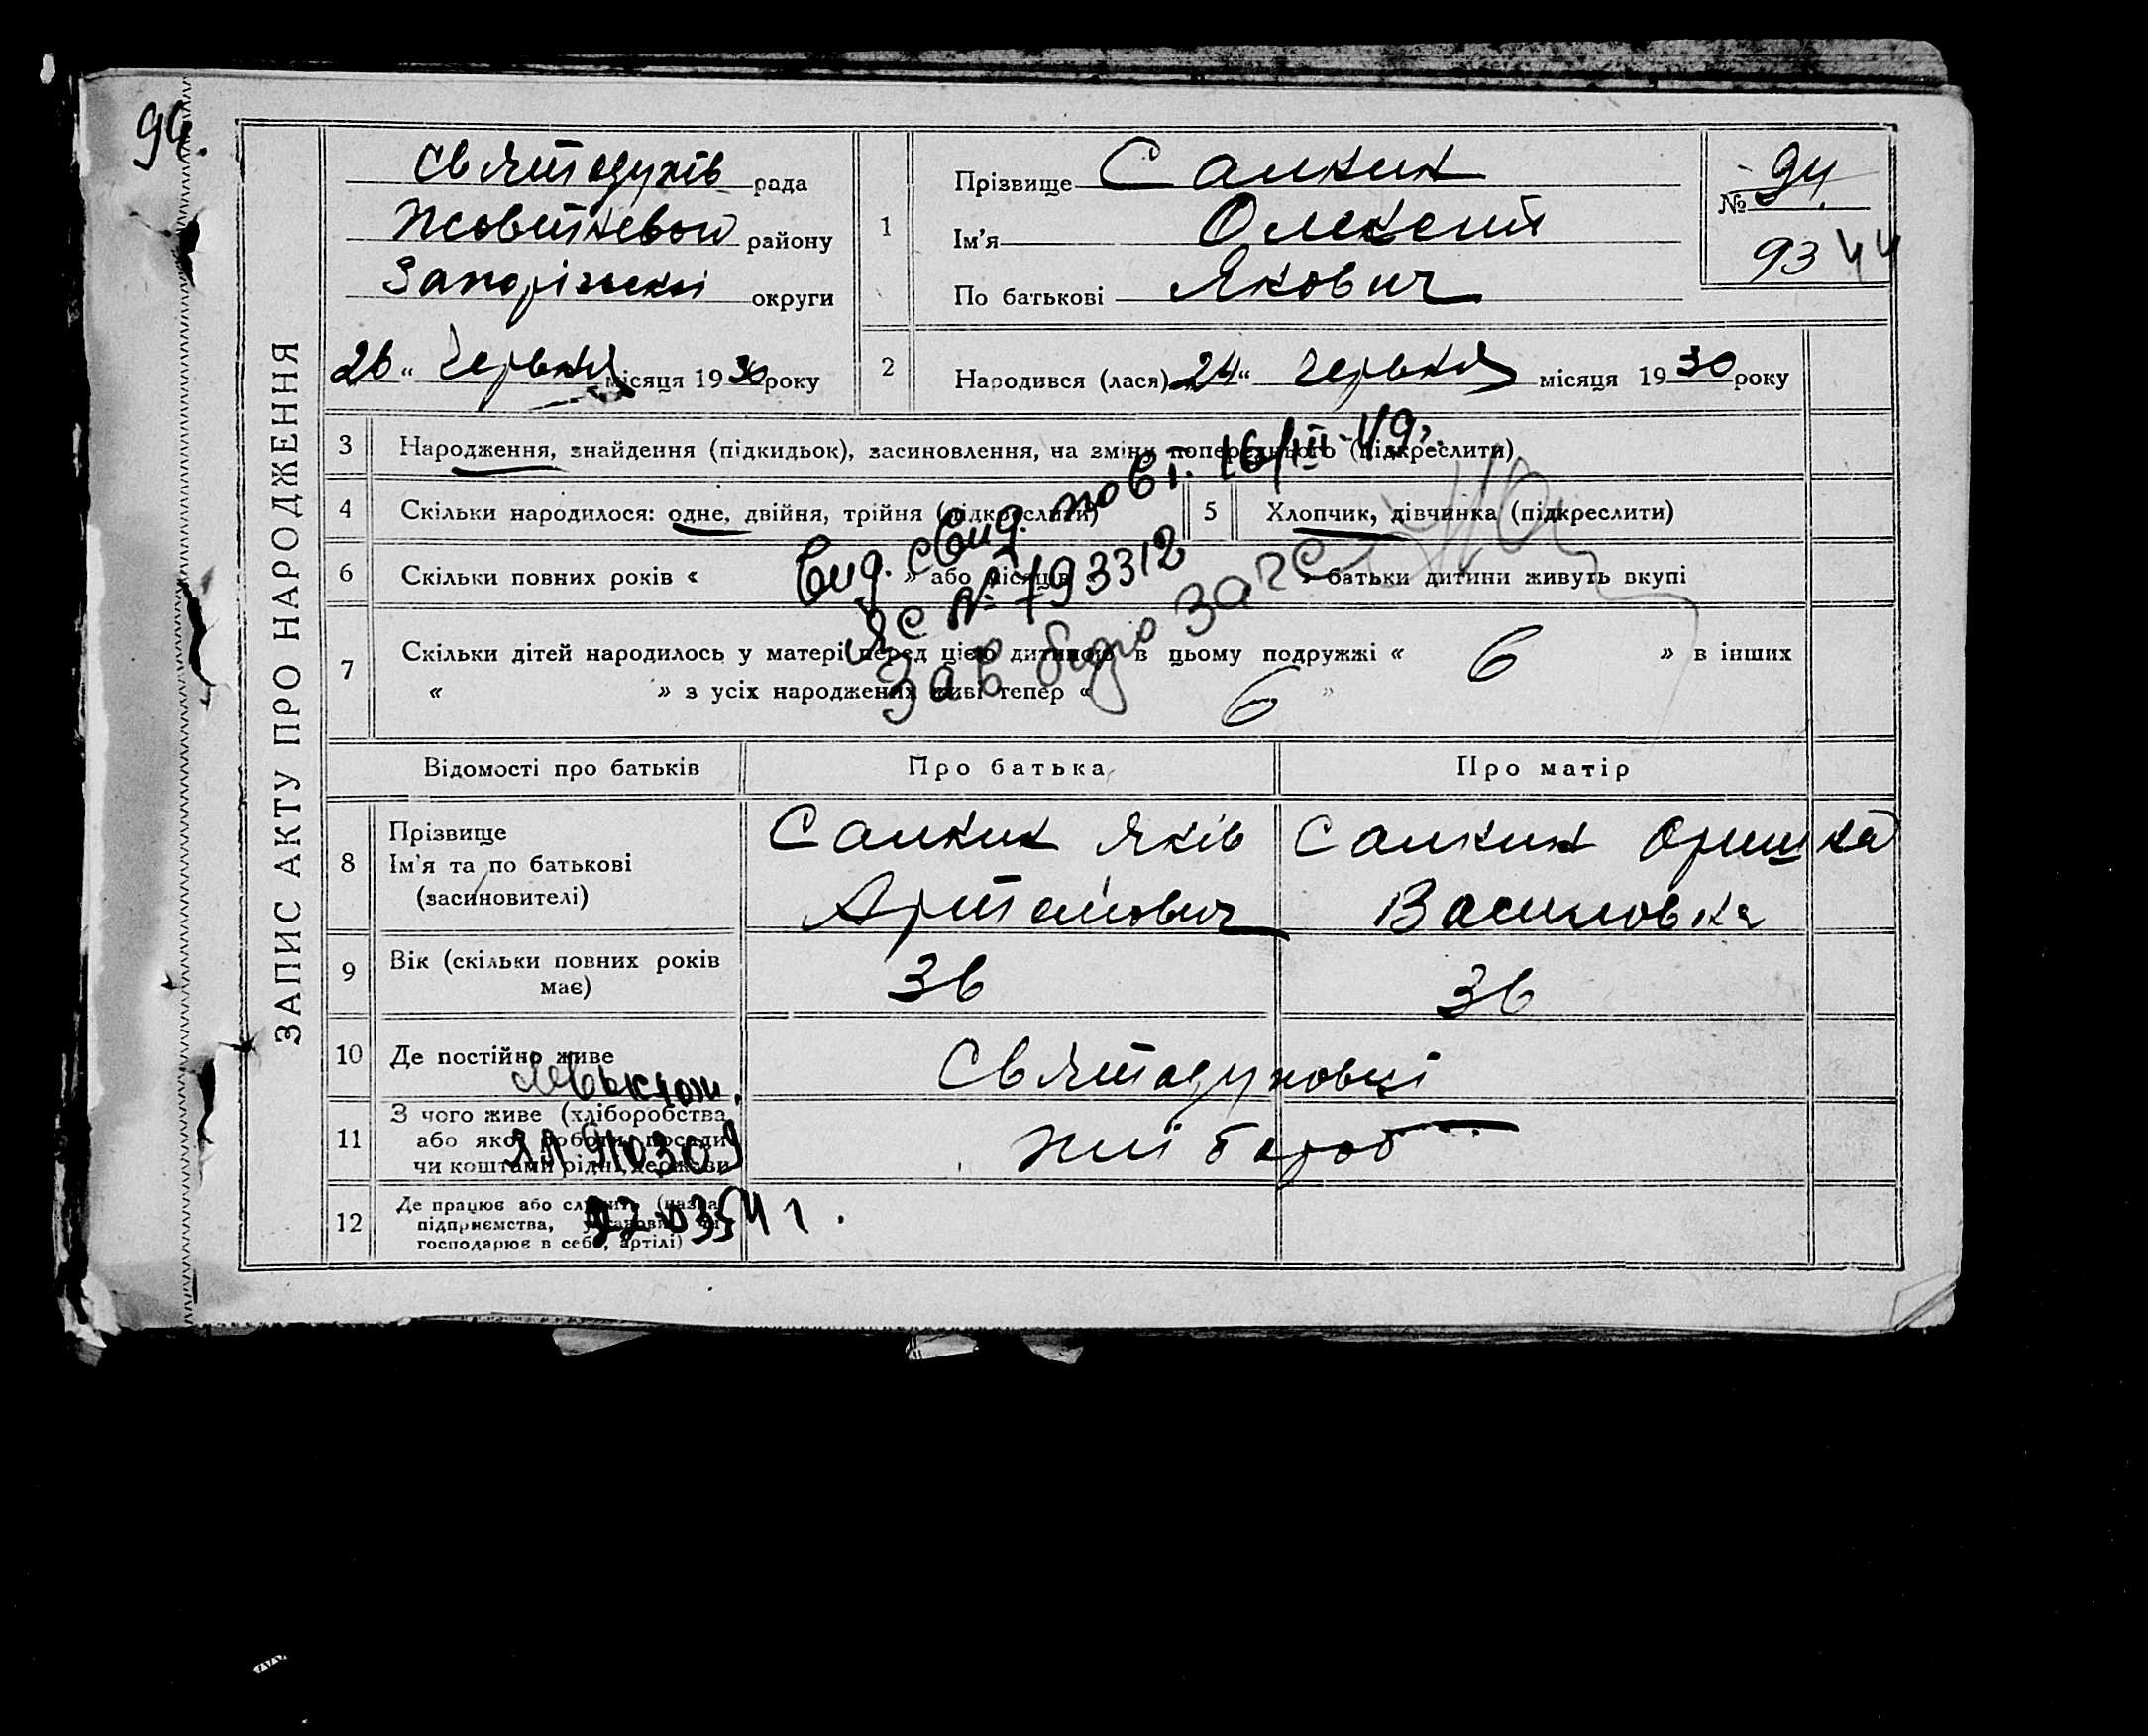 94.
ЗАПИС АКТУ ПРО НАРОДЖЕННЯ
Святодухів рада
Жовтневої району
Запорізької округи
26 " червня місяця 1930 року
1
Прізвище Санкин
Ім'я Олексій
По батькові Якович
№ 94
93 44
2
Народився (лася) 24 " червня місяця 1930 року
3 Народження, знайдення (підкидьок), засиновлення, на зміну попереднього (підкреслити)
4 Скільки народилося: одне, двійня, трійня (підкреслити)
5 Хлопчик, дівчинка (підкреслити)
Вид. свид. повт. 16/III-49г.
ЯС № 793312
Зав бюро ЗАГС
6 Скільки повних років « » або місяців батьки дитини живуть вкупі
7 Скільки дітей народилось у матері перед цією дитиною в цьому подружжі « 6 » в інших
« » з усіх народжених живі тепер « 6 »
Відомості про батьків Про батька Про матір
8 Прізвище
Ім'я та по батькові
(засиновителі)
Санкин Яків
Артемович
Санкин Оришка
Василовна
9 Вік (скільки повних років має) 36 36
10 Де постійно живе Святодуховці
11 З чого живе (хліборобства або якої роботи, посади чи коштами рідні, держави хліборob
910309
12 Де працює або служить (назва підприємства, установи чи господарює в себе, артілі)